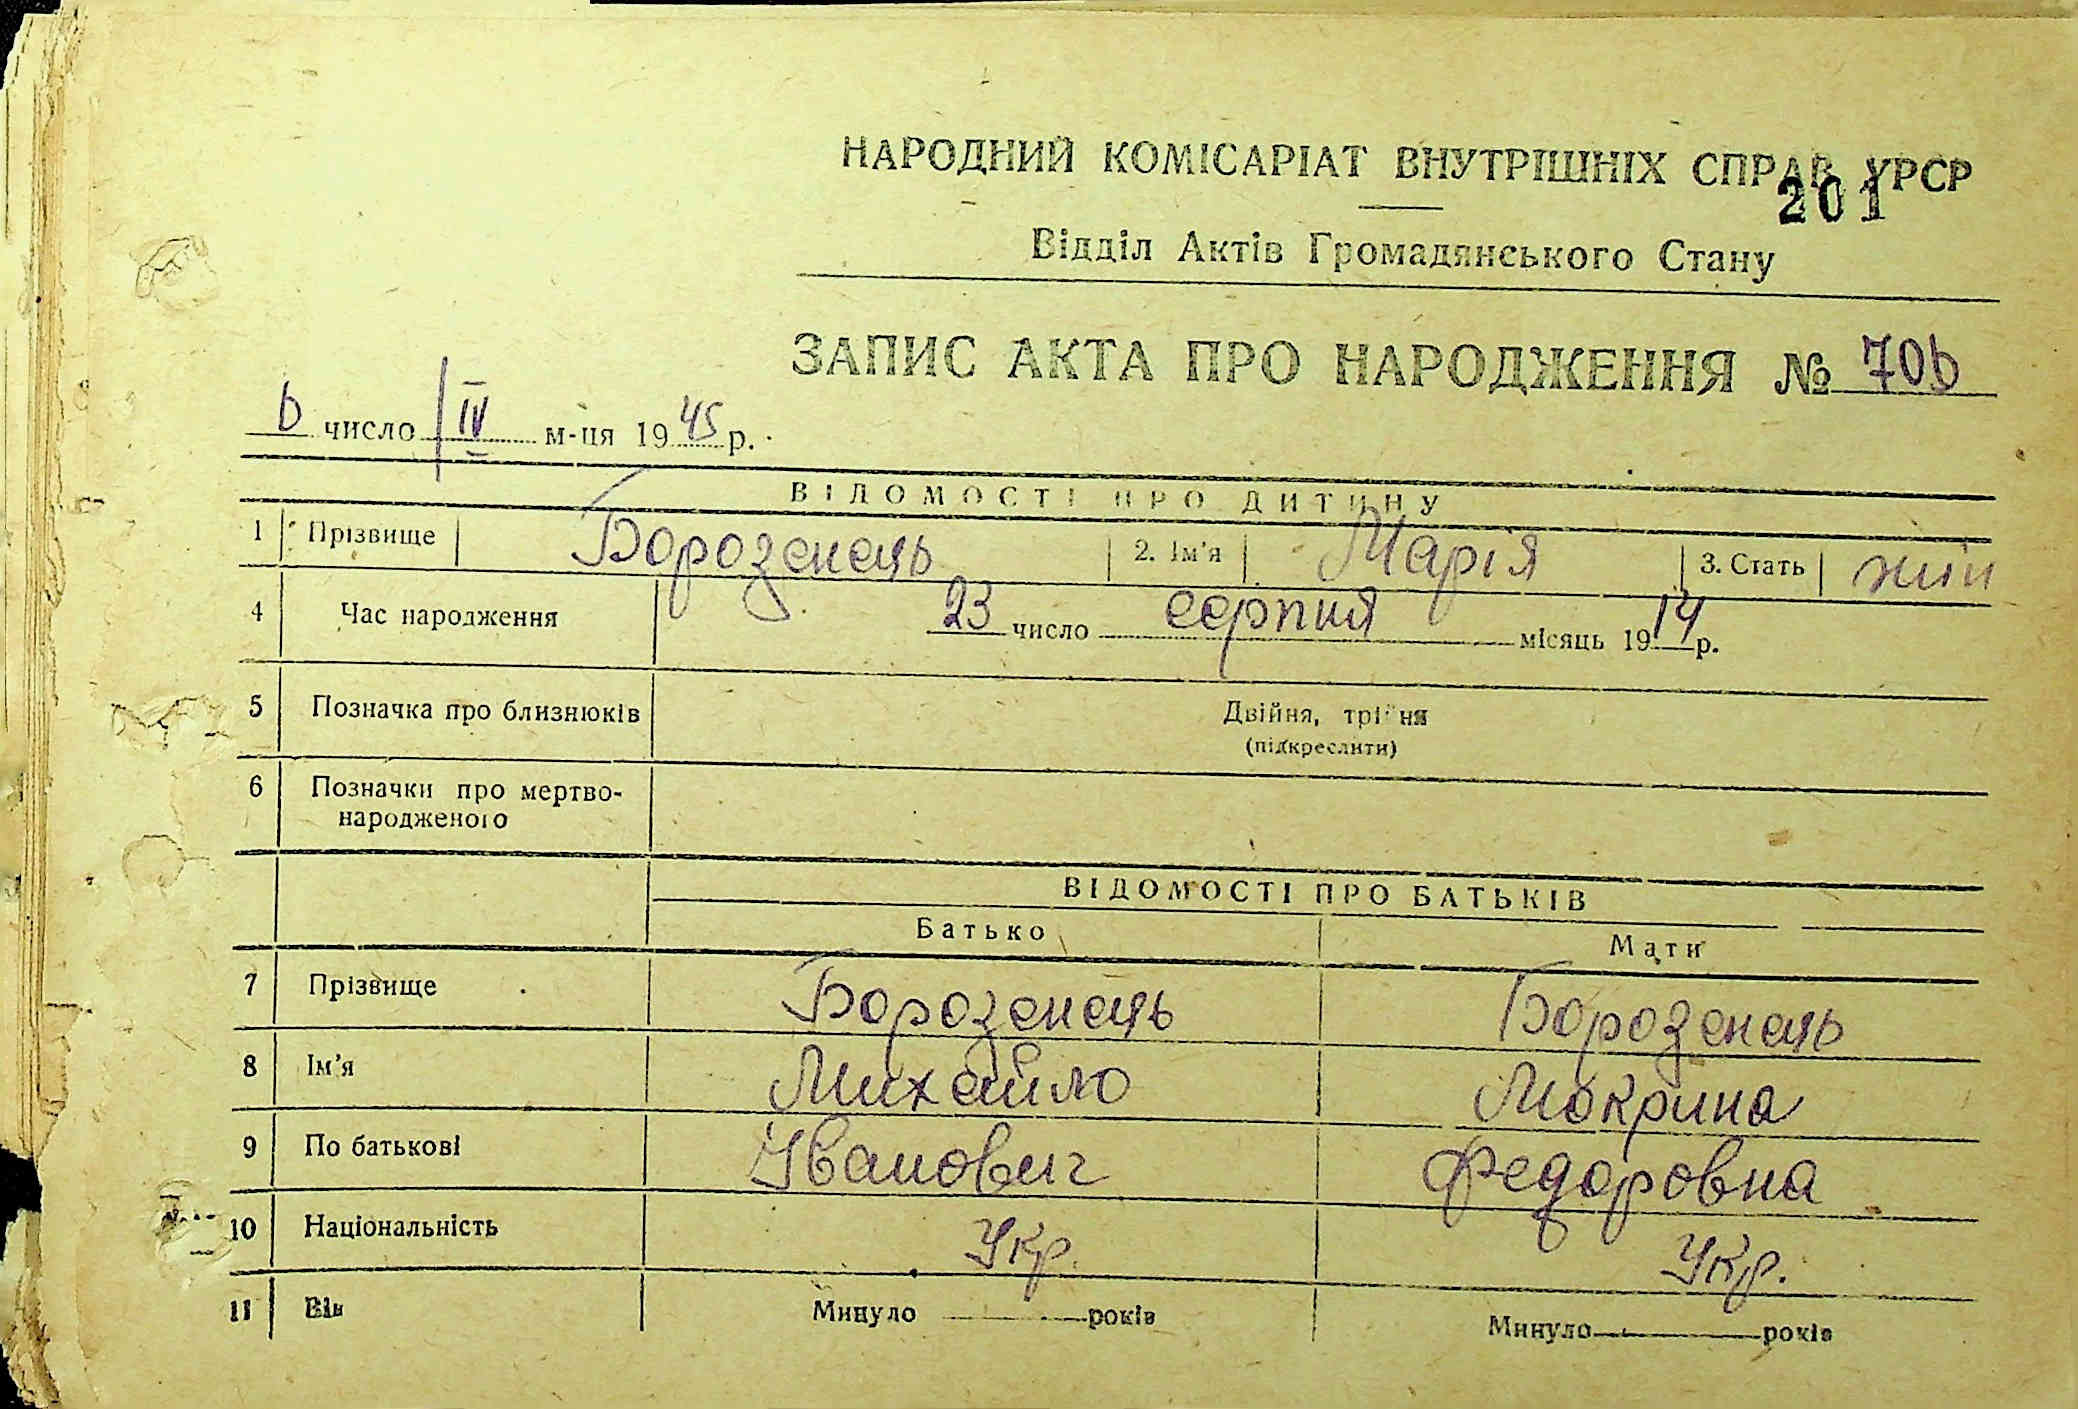 НАРОДНИЙ КОМІСАРІАТ ВНУТРІШНІХ СПРАВ УРСР
201
Відділ Актів Громадянського Стану
ЗАПИС АКТА ПРО НАРОДЖЕННЯ № 706
6 число IV м-ця 1945 р.
ВІДОМОСТІ ПРО ДИТИНУ
1 Прізвище Борозенець 2. Ім'я Марія 3. Стать жін
4 Час народження 23 число серпня місяць 1914 р.
5 Позначка про близнюків Двійня, трійня
(підкреслити)
6 Позначки про мертво-
народженого
ВІДОМОСТІ ПРО БАТЬКІВ
Батько Мати
7 Прізвище Борозенець Борозенець
8 Ім'я Михайло Мокрина
9 По батькові Іванович Федоровна
10 Національність Укр. Укр.
11 Вік Минуло років Минуло років